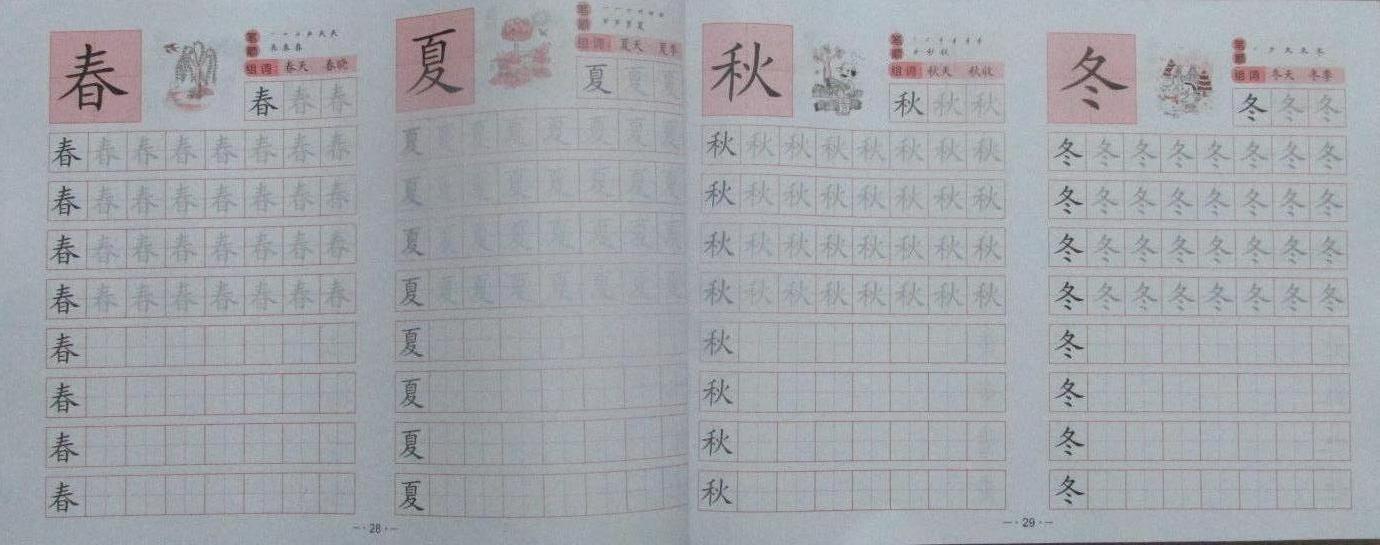 春
笔顺
组词 春天 春晓
春 春 春
春 春 春 春 春 春 春 春
春 春 春 春 春 春 春 春
春 春 春 春 春 春 春 春
春 春 春 春 春 春 春 春
春
春
春
春
夏
笔顺
组词 夏天 夏季
夏 夏 夏
夏 夏 夏 夏 夏 夏 夏 夏
夏 夏 夏 夏 夏 夏 夏 夏
夏 夏 夏 夏 夏 夏 夏 夏
夏 夏 夏 夏 夏 夏 夏 夏
夏
夏
夏
夏
－·28·－
秋
笔顺
组词 秋天 秋收
秋 秋 秋
秋 秋 秋 秋 秋 秋 秋 秋
秋 秋 秋 秋 秋 秋 秋 秋
秋 秋 秋 秋 秋 秋 秋 秋
秋 秋 秋 秋 秋 秋 秋 秋
秋
秋
秋
秋
冬
笔顺
组词 冬天 冬季
冬 冬 冬
冬 冬 冬 冬 冬 冬 冬 冬
冬 冬 冬 冬 冬 冬 冬 冬
冬 冬 冬 冬 冬 冬 冬 冬
冬 冬 冬 冬 冬 冬 冬 冬
冬
冬
冬
冬
－·29·－